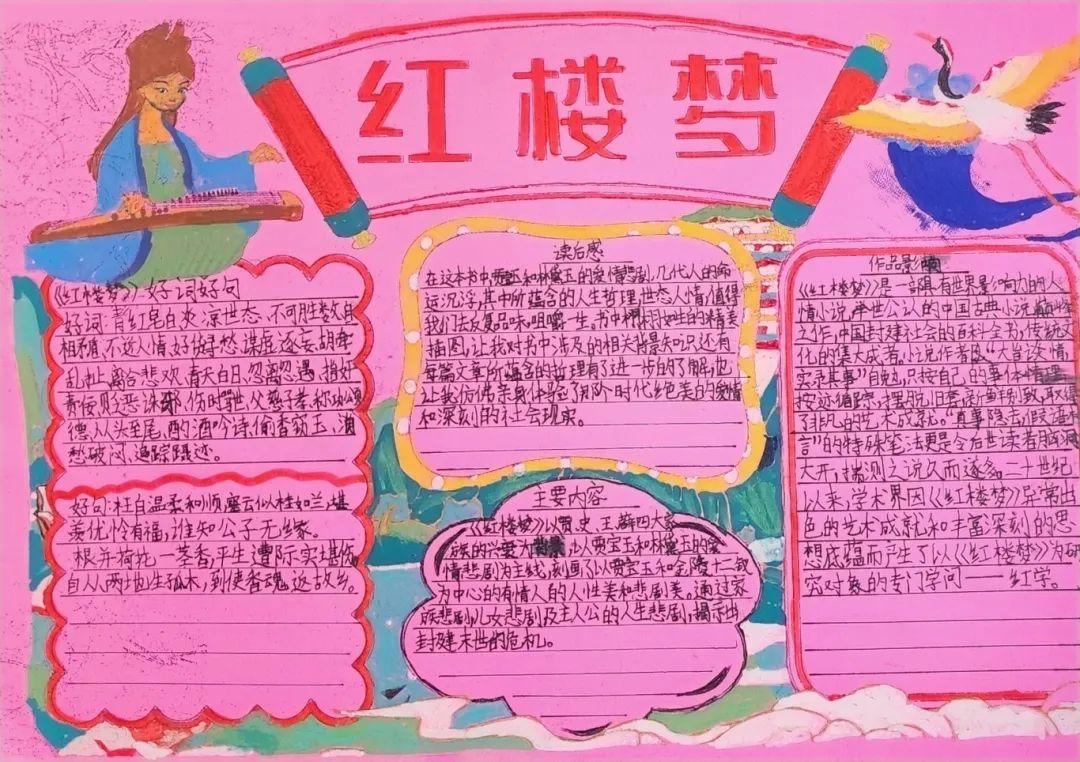 红楼梦
《红楼梦》好词好句
好词:青红皂白、炎凉世态、不可胜数、自
相矛盾、不近人情、好
乱扯、离合悲欢、青天白日、忽离忽遇、
责佞、贬恶诛邪、伤时骂世、父慈子孝、称功颂
德、从头至尾、酌酒吟诗、偷香窃玉、消
愁破闷、追踪蹑迹。
好句:枉自温柔和顺,空云似桂如兰,堪
羡优伶有福,谁知公子无缘。
根并荷花一茎香,平生遭际实堪伤
自从两地生孤木,到使香魂返故乡。
读后感
在这本书中,贾宝玉和林黛玉的爱情悲剧,几代人的命
运沉浮,其中所蕴含的人生哲理,世态人情,值得
我们去反复品味,咀嚼一生。书中栩栩如生的精美
插图,让我对书中涉及的相关背景知识还有
每篇文章所蕴含的哲理有了进一步的了解,也
让我仿佛亲身体验了那个时代绝美的爱情
和深刻的社会现实。
主要内容
《红楼梦》以贾、史、王、薛四大家
族的兴衰为背景,以贾宝玉和林黛玉的爱
情悲剧为主线,刻画了以贾宝玉和金陵十二钗
为中心的有情人的人性美和悲剧美。通过家
族悲剧,儿女悲剧及主人公的人生悲剧,揭示出
封建末世的危机。
作品影响
《红楼梦》是一部具有世界影响力的人
情小说,举世公认的中国古典小说巅峰
之作,中国封建社会的百科全书,传统文
化的集大成者。小说作者以“大旨谈情,
实录其事”自勉,只按自己的事体情理,
按迹循踪,摆脱旧套,新鲜别致,取得
了非凡的艺术成就。“真事隐去,假语村
言”的特殊笔法更是令后世读者脑洞
大开,揣测之说久而遂多。二十世纪
以来,学术界因《红楼梦》异常出
色的艺术成就和丰富深刻的思
想底蕴而产生了以《红楼梦》为研
究对象的专门学问——红学。